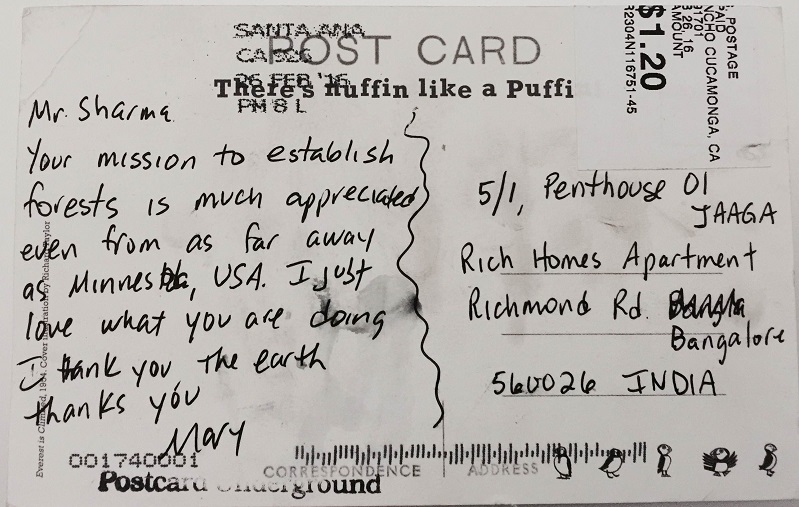 SANTA ANA
CA 926
26 FEB '16
PM 8 L
POST CARD
There's nuffin like a Puffi
POSTAGE
PAID
NCHO CUCAMONGA, CA
91701
26, 16
AMOUNT
$1.20
R2304N116751-45
Mr. Sharma
Your mission to establish
forests is much appreciated
even from as far away
as Minnesota, USA. I just
love what you are doing
I thank you the earth
thanks you
Mary
5/1, Penthouse 01
JAAGA
Rich Homes Apartment
Richmond Rd.
Bangalore
560026 INDIA
Everest is Climbed, 1954. Cover illustration by Richard Taylor
001740001
CORRESPONDENCE
ADDRESS
Postcard Underground